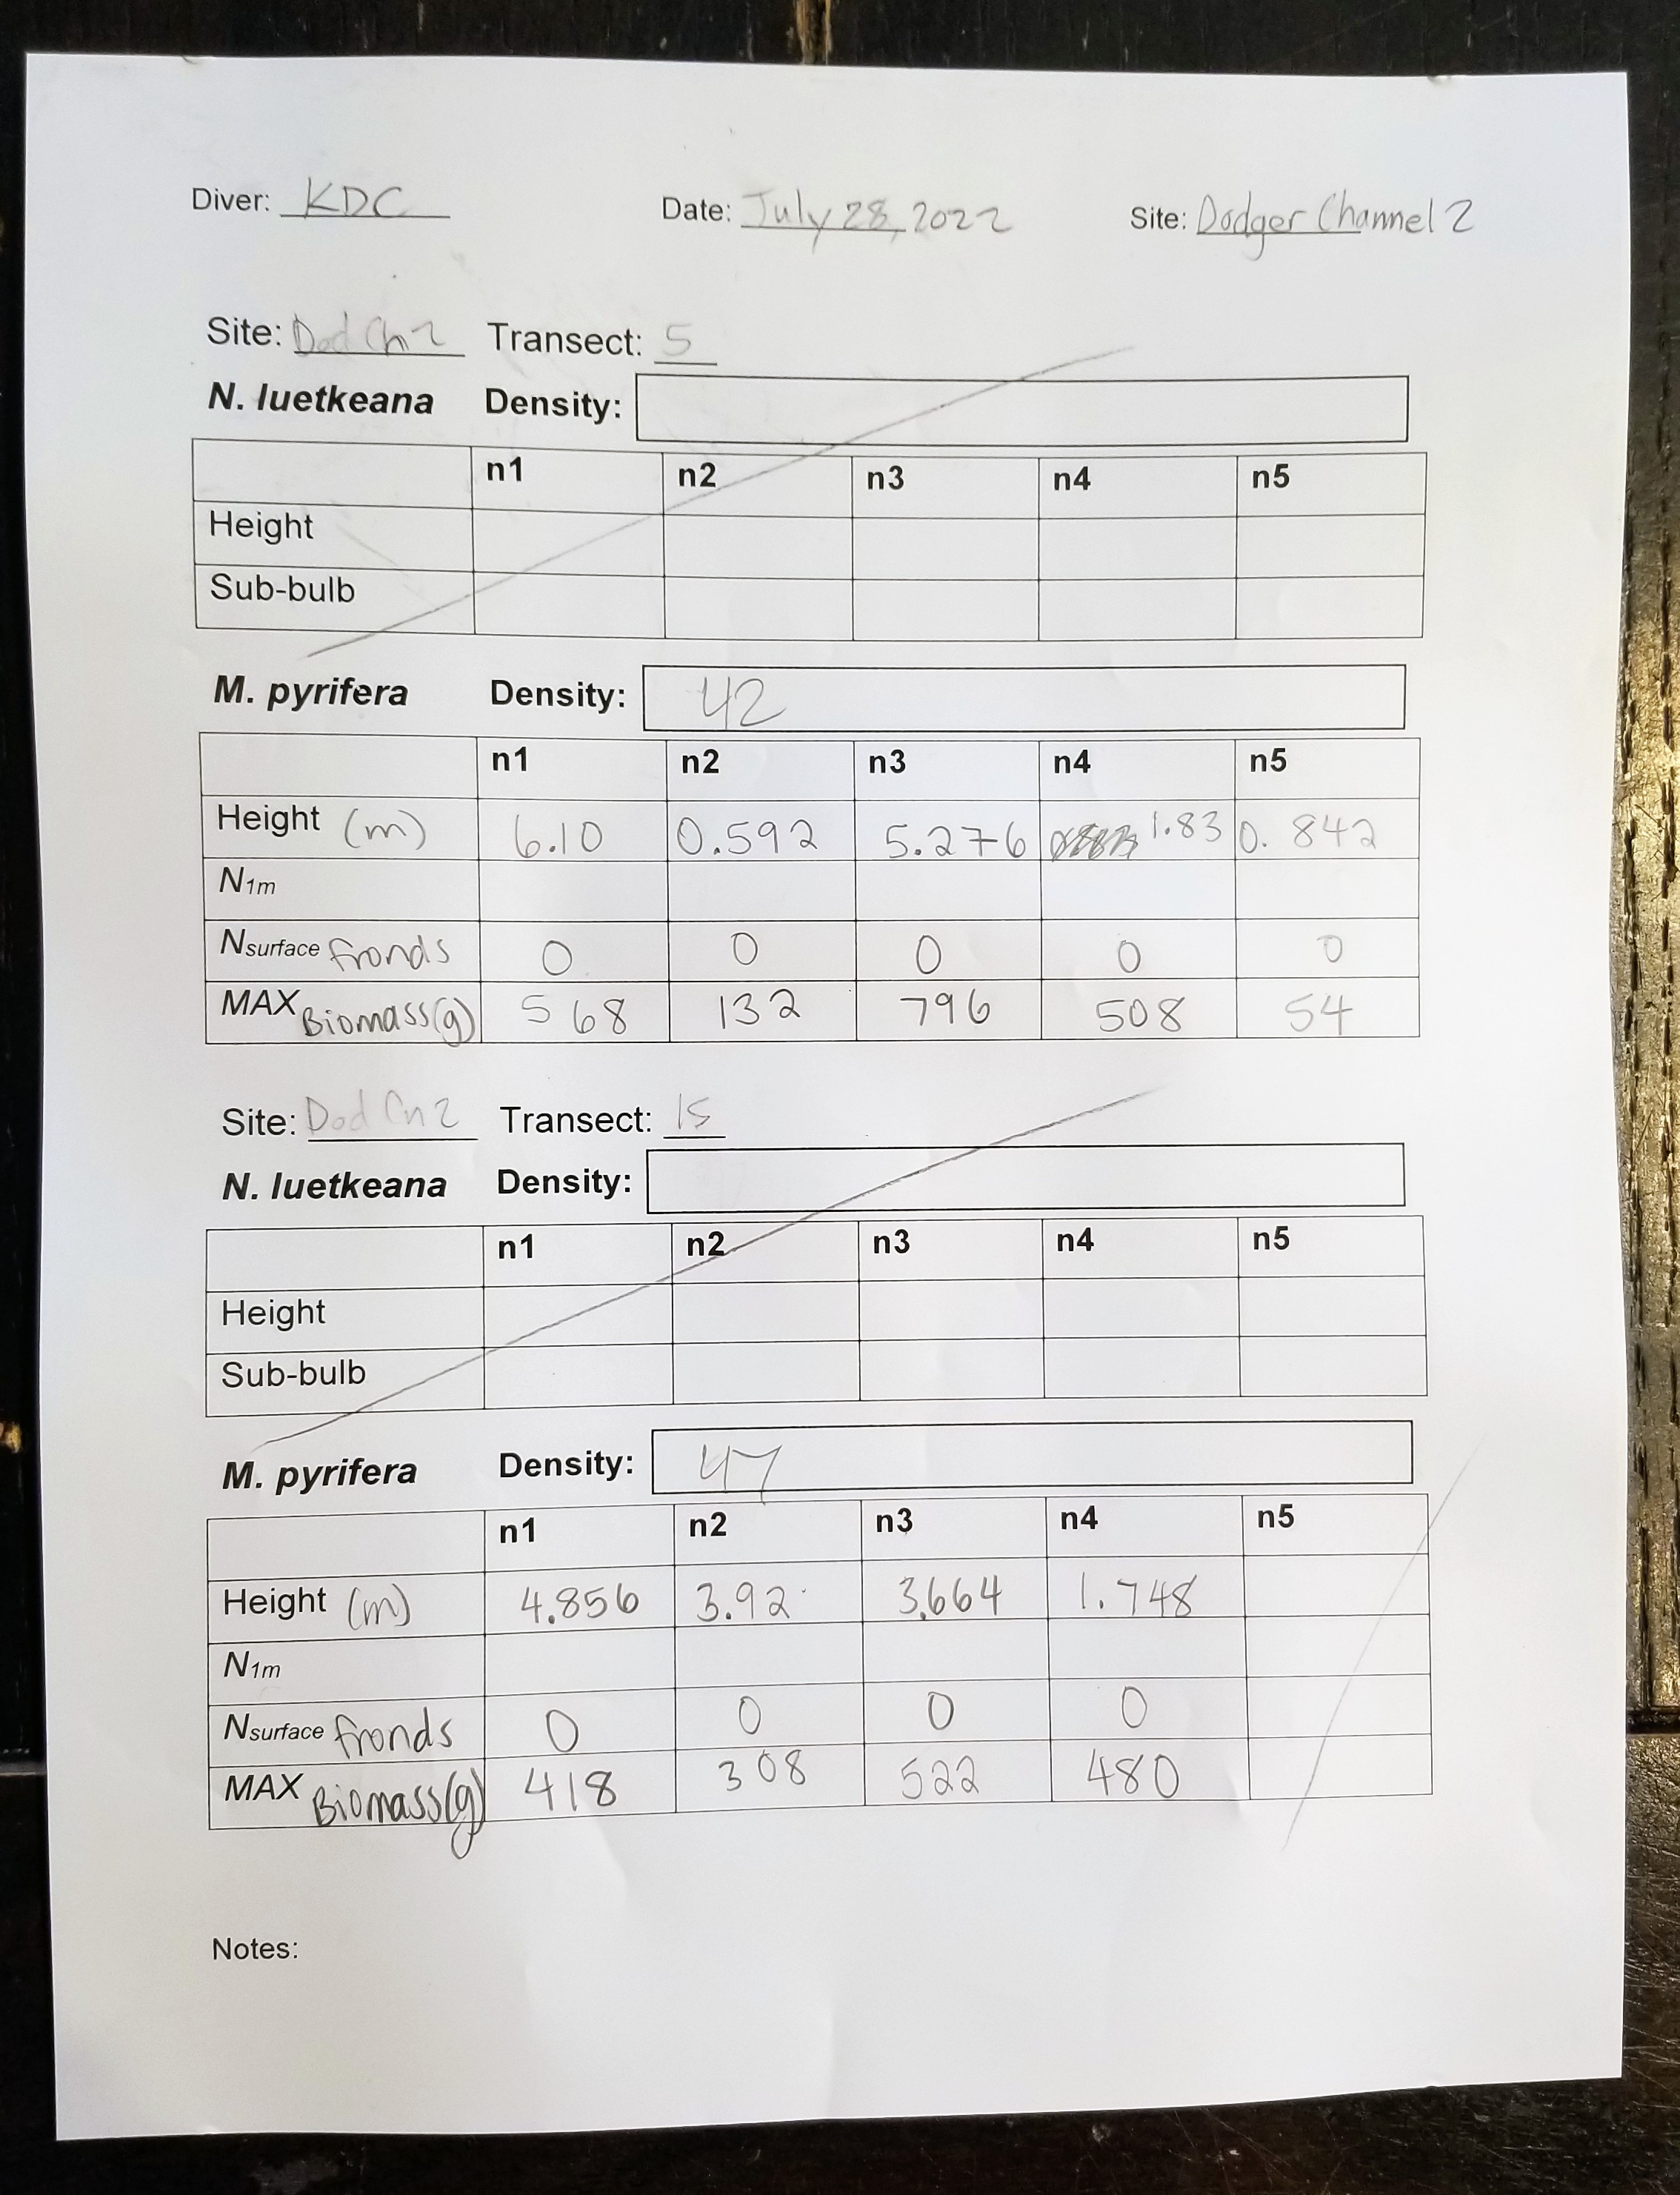 Diver: KDC Date: July 28, 2022 Site: Dodger Channel 2
Site: Dod Ch 2 Transect: 5
N. luetkeana Density:
n1 n2 n3 n4 n5
Height
Sub-bulb
M. pyrifera Density: 42
n1 n2 n3 n4 n5
Height (m) 6.10 0.592 5.276 1.83 0.842
N1m
Nsurface fronds 0 0 0 0 0
MAX Biomass(g) 568 132 796 508 54
Site: Dod Ch 2 Transect: 15
N. luetkeana Density:
n1 n2 n3 n4 n5
Height
Sub-bulb
M. pyrifera Density: 47
n1 n2 n3 n4 n5
Height (m) 4.856 3.92 3.664 1.748
N1m
Nsurface fronds 0 0 0 0
MAX Biomass(g) 418 308 522 480
Notes: